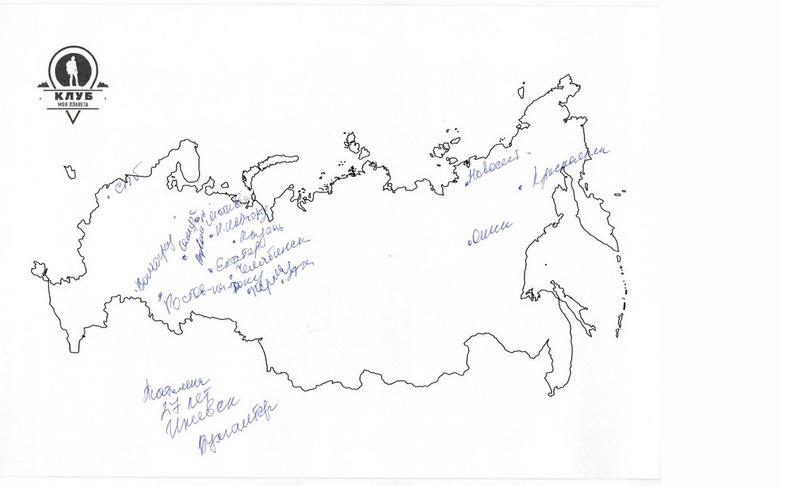 КЛУБ
МОЯ ПЛАНЕТА
СПб
Новосиб-
Красноярск
Омск
Волгоград
Самара
Москва
Н.Новгород
Казань
Екатер
Челябинск
Ростов-на-Дону
Пермь
Уфа
Татьяна
27 лет
Ижевск
Бухгалтер